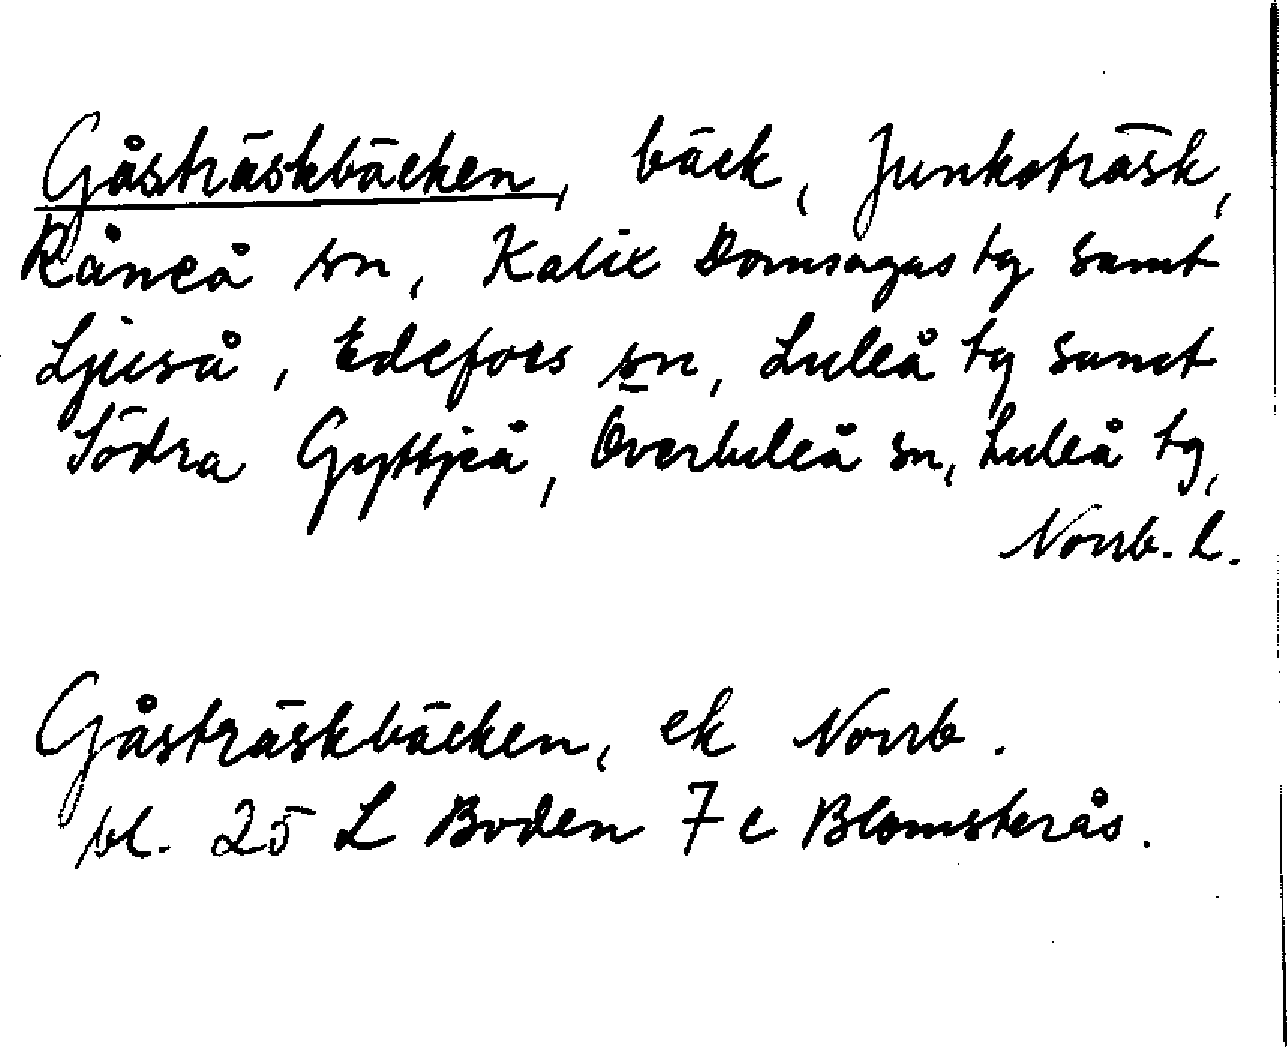 Gåsträskbäcken, bäck, Junkoträsk,
Råneå sn, Kalix Domsagas tg samt
Ljuså, Edefors sn, Luleå tg samt
Södra Gyttjeå, Överluleå sn, Luleå tg,
Norrb. l.
Gåsträskbäcken, ek Norrb.
bl. 25 L Boden 7 c Blomsterås.